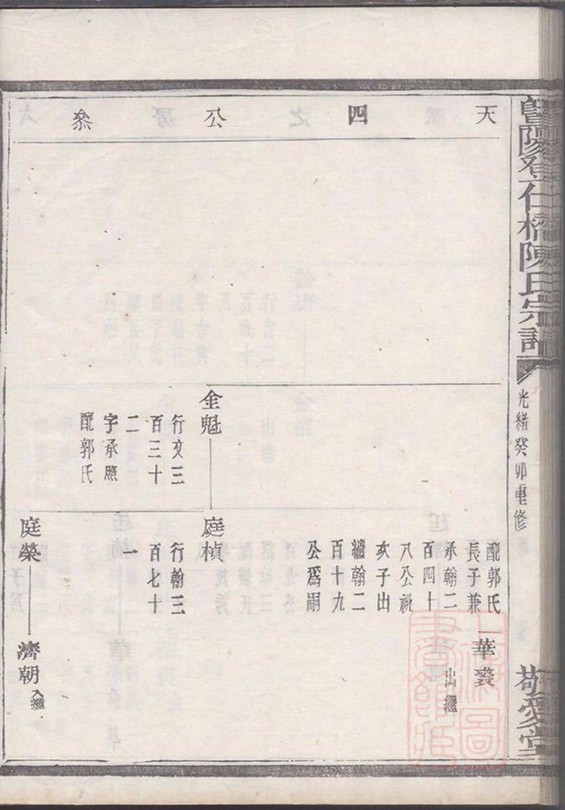 暨陽登仕橋陳氏宗譜
光緒癸卯重修
敬愛堂
天四公叅
配郭氏
長子兼
承翰二
百四十
八公祧
次子出
繼翰二
百十九
公爲嗣
華裘
出繼
金魁
行文三
百三十
二
字承照
配郭氏
庭楨
行翰三
百七十
一
庭榮
濟朝入繼